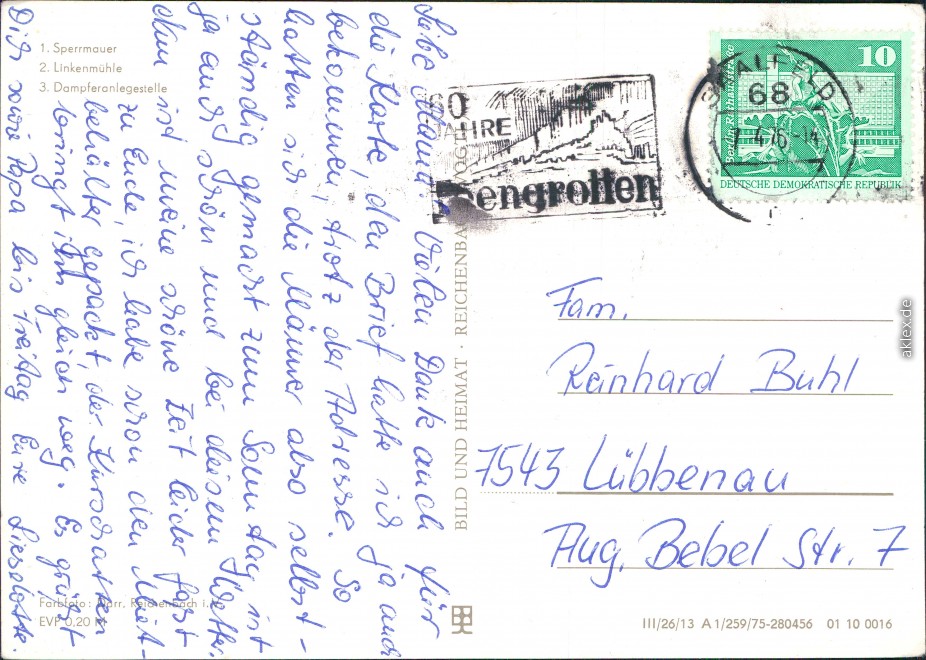 1. Sperrmauer
2. Linkenmühle
3. Dampferanlegestelle
Liebe Mama! Vielen Dank auch für
die Karte, den Brief hatte ich ja auch
bekommen, trotz der Adresse. So
hatten sich die Männer also selbst-
ständig gemacht zum Sonntag ist
ja auch schön und bei diesem Wetter.
Nun ist meine schöne Zeit leider fast
zu Ende, ich habe schon den Miet-
behälter gepackt, der Kurschatten
bringt ihn gleich weg. Es grüßt
Dich sowie Papa bis Freitag Eure Lieselotte.
Farbfoto: Darr, Reichenbach i. V.
EVP 0,20 M
BILD UND HEIMAT · REICHENBACH (VOGTL)
60
JAHRE
Feengrotten
SAALFELD
68
4.76-14
7
10
Berlin, Rathausstraße
DEUTSCHE DEMOKRATISCHE REPUBLIK
Fam.
Reinhard Buhl
7543 Lübbenau
Aug. Bebel Str. 7
III/26/13 A 1/259/75-280456 01 10 0016
aklex.de